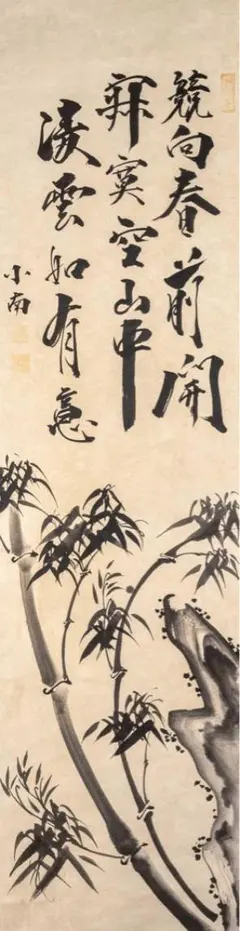 競向春前開
寂寞空山中
凌雲如有意
小南